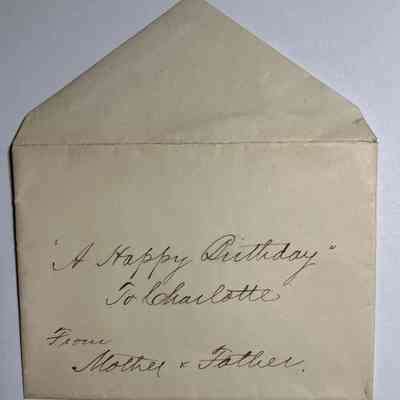 "A Happy Birthday"
To Charlotte
From
Mother & Father.